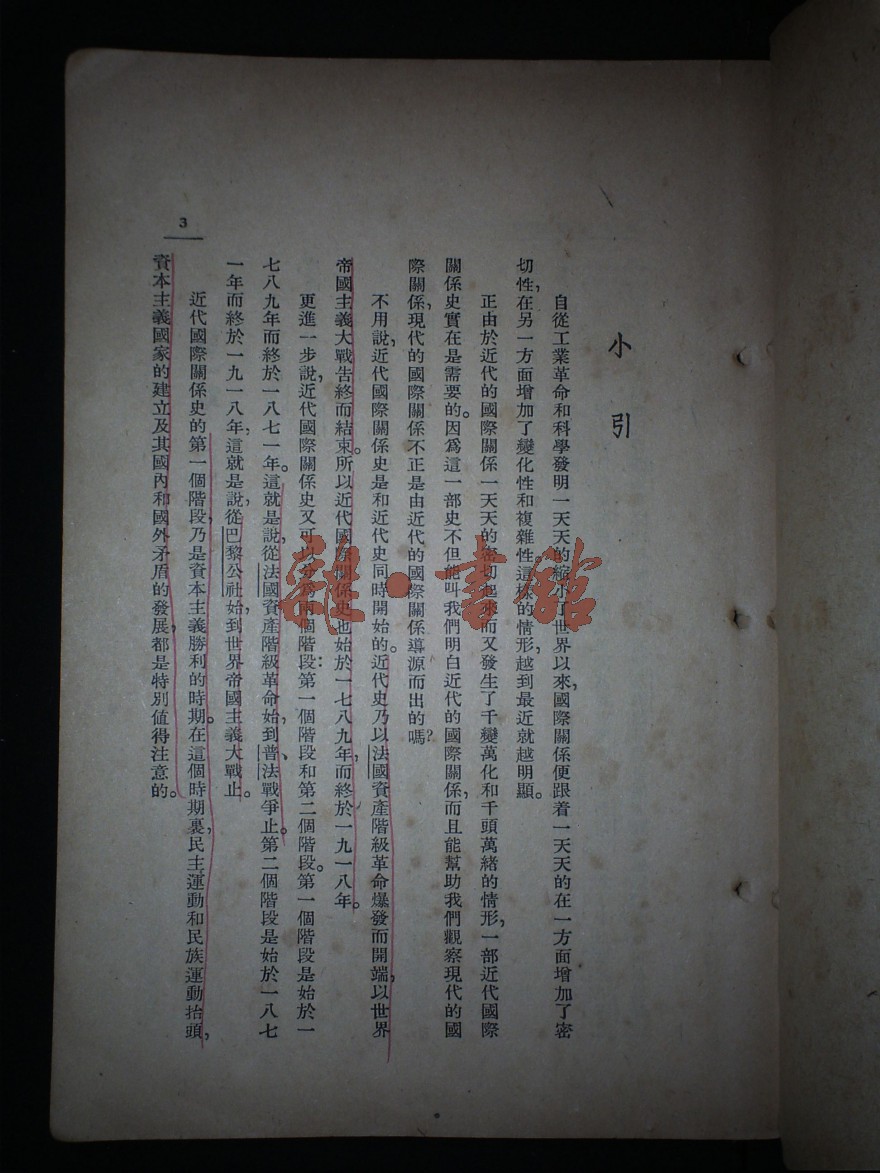 小引
自從工業革命和科學發明一天天的縮小了世界以來，國際關係便跟着一天天的在一方面增加了密
切性，在另一方面增加了變化性和複雜性。這樣的情形，越到最近就越明顯。
正由於近代的國際關係一天天的密切起來而又發生了千變萬化和千頭萬緒的情形，一部近代國際
關係史實在是需要的。因爲這一部史不但能叫我們明白近代的國際關係，而且能幫助我們觀察現代的國
際關係，現代的國際關係不正是由近代的國際關係導源而出的嗎？
不用說，近代國際關係史是和近代史同時開始的。近代史乃以法國資產階級革命爆發而開端，以世界
帝國主義大戰告終而結束。所以近代國際關係史也始於一七八九年，而終於一九一八年。
更進一步說，近代國際關係史又可以分爲兩個階段：第一個階段和第二個階段。第一個階段是始於一
七八九年而終於一八七一年。這就是說，從法國資產階級革命始，到普、法戰爭止。第二個階段是始於一八七
一年而終於一九一八年，這就是說，從巴黎公社始到世界帝國主義大戰止。
近代國際關係史的第一個階段，乃是資本主義勝利的時期。在這個時期裏，民主運動和民族運動抬頭，
資本主義國家的建立及其國內和國外矛盾的發展，都是特別值得注意的。
3
雜·書館